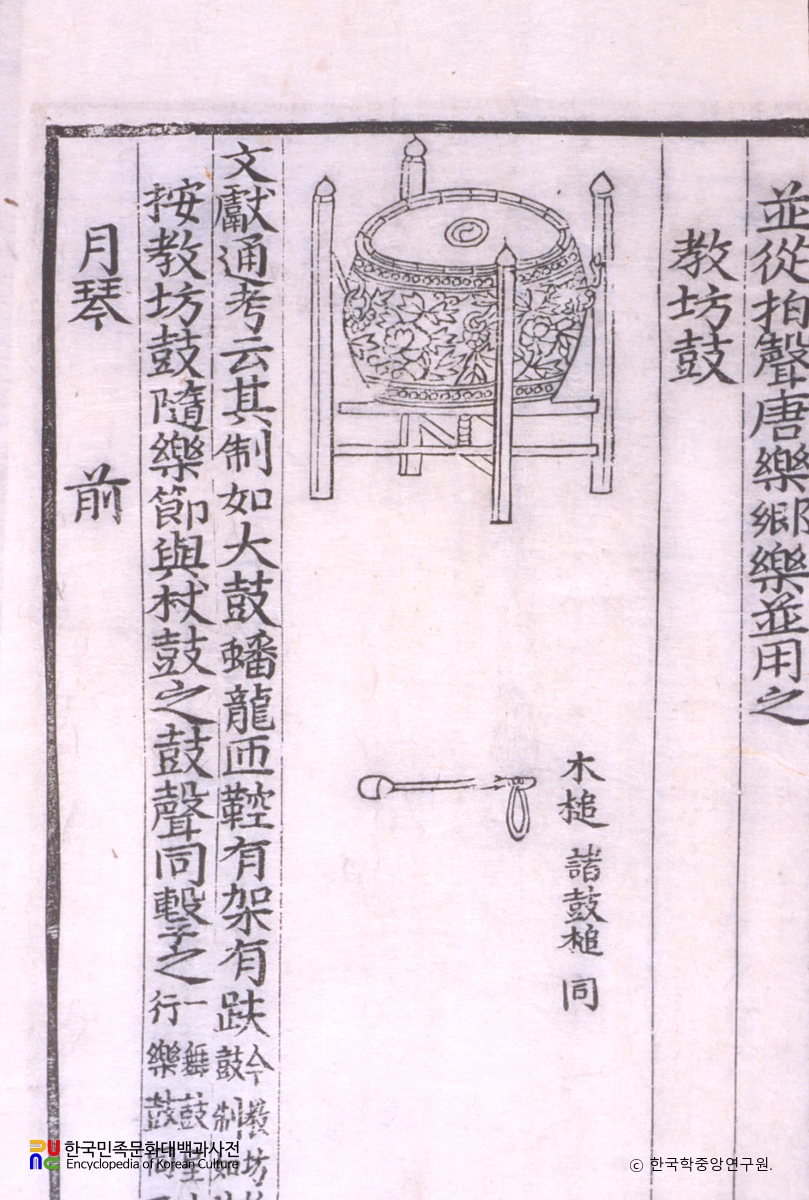 並從拍聲唐樂鄕樂並用之
教坊鼓
木槌 諸鼓槌 同
文獻通考云其制如大鼓蟠龍匝鞚有架有趺
今教坊
鼓制如
按教坊鼓隨樂節與杖鼓之鼓聲同擊之
一舞鼓呈
行樂鼓同
月琴 前
한국민족문화대백과사전
Encyclopedia of Korean Culture
© 한국학중앙연구원.